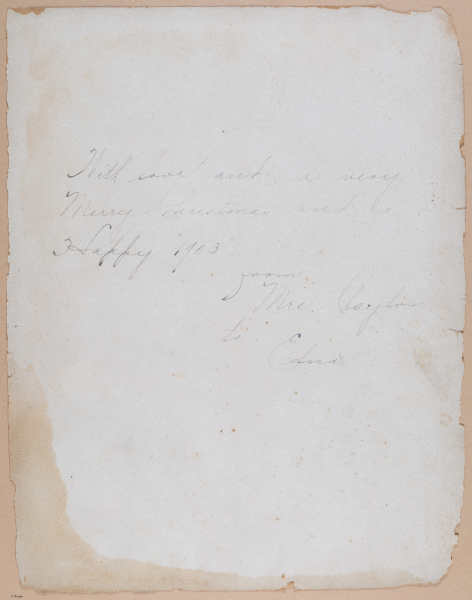 With love and a very
Merry Christmas and a
Happy 1903
from
Mrs.
to
Edna